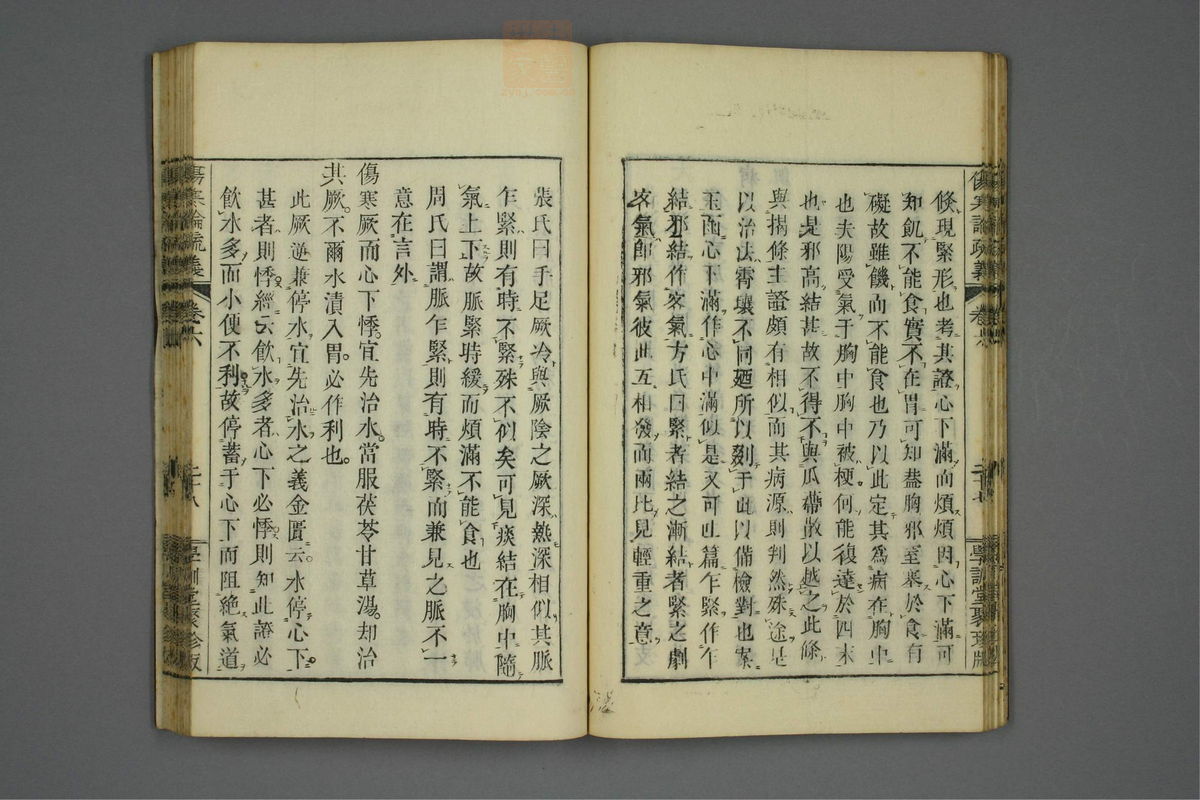 傷寒論疏義 卷六 二十八 學訓堂聚珍版
倐現緊形也考其證心下滿而煩煩因心下滿可
知飢不能食實不在胃可知蓋胸邪室塞於食有
礙故雖饑而不能食也乃以此定其爲病在胸中
也夫陽受氣于胸中胸中被梗何能復達於四末
也是邪高結甚故不得不與瓜蔕散以越之此條
與揭條主證頗有相似而其病源則判然殊途是
以治法霄壤不同廼所以列于此以備檢對也案
玉函心下滿作心中滿似是又可也篇乍緊作乍
結邪結作客氣方氏曰緊者結之漸結者緊之劇
客氣卽邪氣彼此互相發而兩比見輕重之意
張氏曰手足厥冷與厥陰之厥深熱深相似其脈
乍緊則有時不緊殊不似矣可見痰結在胸中隨
氣上下故脈緊時緩而煩滿不能食也
周氏曰謂脈乍緊則有時不緊而兼見之脈不一
意在言外
傷寒厥而心下悸宜先治水當服茯苓甘草湯却治
其厥不爾水漬入胃必作利也
此厥逆兼停水宜先治水之義金匱云水停心下
甚者則悸經云飲水多者心下必悸則知此證必
飲水多而小便不利故停蓄于心下而阻絶氣道
傷寒論疏義 卷六 二十八 學訓堂聚珍版